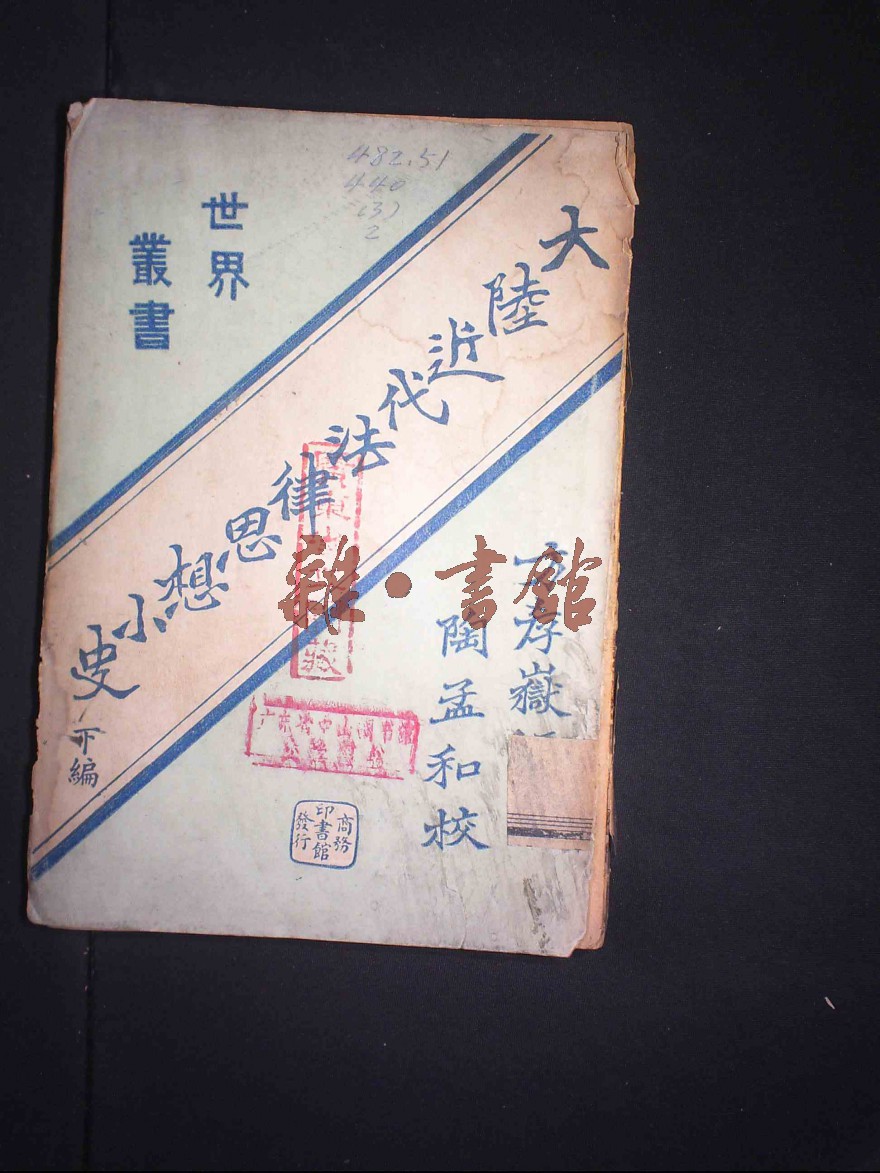 482.51
440
(3)
2
世界
叢書
大陸近代法律思想小史 下編
方孝嶽
陶孟和校
雜·書館
广东省中山图书馆
商務
印書館
發行